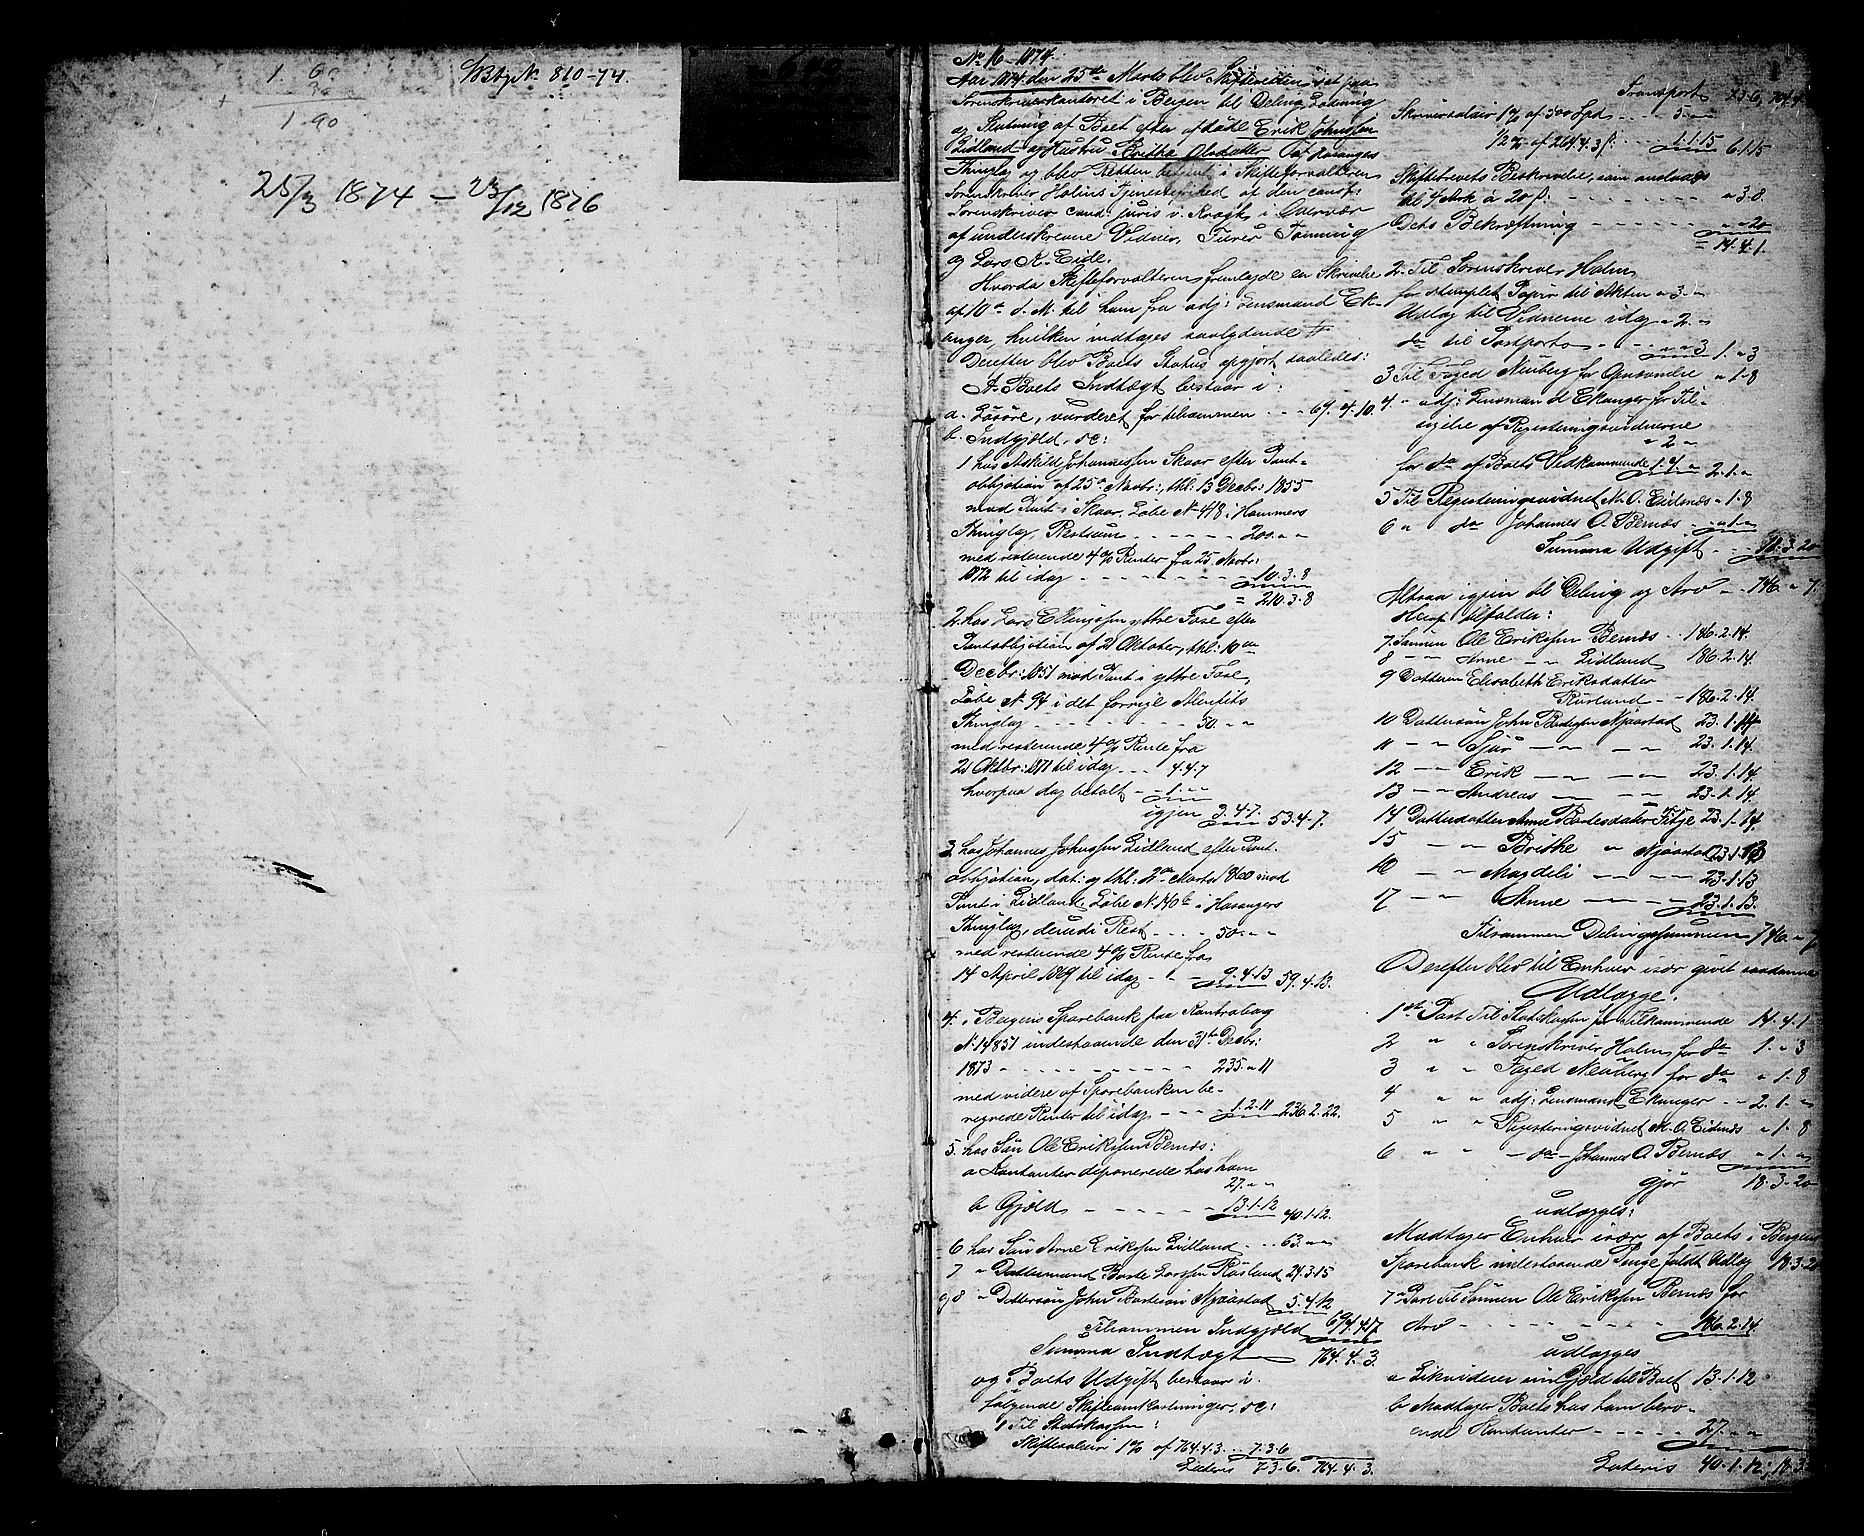 1. 60
30
1.90
Btg No 810-74.
640
25/3 1874 – 23/12 1876
No 16 – 1874.
Aar 1874 den 25de Marts blev Skifteretten sat paa
Sorenskriverkontoret i Bergen til Deling Lodning
og Slutning af Boet efter afdøde Erik Johnssen
Lidland og Hustru Britha Olsdatter af Hosangers
Thinglag og blev Retten betjent i Skifteforvalteren
Sorenskriver Holms Tjenestefrihed af den const:
Sorenskriver cand: juris v. Krogh i Overvær
af underskrevne Vidner, Turer Tonning
og Lars A. Eide.
Hvorda Skifteforvalteren fremlagde en Skrivelse
af 10de d. M. til ham fra adj: Lensmand Ek-
anger, hvilken indtages saalydende #
Derefter blev Boets Status opgjort saaledes:
A. Boets Indtægt bestaar i:
a. Løsøre, vurderet for tilsammen . . . 69. 4. 10.
b. Indgjæld, sc:
1 hos Askild Johannessen Skaar efter Pant-
obligation af 25de Novbr:, thl: 13 Decbr: 1855
med Pant i Skaar, Løbe No 418 i Hammers
Thinglag, Restsum - - - - - - 200. " "
med resterende 4 % Renter fra 25 Novbr:
1872 til idag - - - - - - - - 10. 3. 8
= 210. 3. 8
2. hos Lars Ellingssen yttre Fose efter
Pantobligation af 21 Oktober, thl: 10de
Decbr: 1851 med Pant i yttre Fose,
Løbe No 94 i det forrige Alenfits
Thinglag - - - - - - - - 50. " "
med resterende 4 % Rente fra
21 Oktbr: 1871 til idag . . . 4. 4. 7
hvorpaa dag betalt - - 1. " "
igjen 3. 4. 7. 53. 4. 7.
3 hos Johannes Johnssen Lidland efter Pant-
obligation, dat: og thl: 2den Marts 1860 med
Pant i Lidland, Løbe No 140 b i Hosangers
Thinglag, deraf Rest - - - - 50. " "
med resterende 4 % Rente fra
14 April 1869 til idag - - 9. 4. 13 59. 4. 13.
4. i Bergens Sparebank paa Kontrabog
No 14851 indestaaende den 31te Decbr:
1873 - - - - - - - - - - 235. " 11
med videre af Sparebanken be-
regnede Renter til idag - - - 1. 2. 11 236. 2. 22.
5. hos Søn Ole Erikssen Bernæs:
a Kontanter deponerede hos ham
27. " "
b Gjæld - - - - - - 13. 1. 12 40. 1. 12.
6 hos Søn Arne Erikssen Lidland . . . 63. " "
7 " Dattermand Borte Larssen Røsland 29. 3. 15
og 8 " Dattersøn John Bortesen Mjaastad 5. 4. 12
Tilsammen Indgjæld 694. 4. 17
Summa Indtægt 764. 4. 3.
og Boets Udgift bestaar i
følgende Skifteomkostninger, sc:
1 Til Statskassen:
Skiftesalair 1 % af 764.4.3 . . 7. 3. 6
Lateris 7. 3. 6. 764. 4. 3.
Transport 7. 3. 6, 764. 4. 3
Skriversalair 1 % af 500 Spd . . . . 5. " "
1/2 % af 264. 4. 3 ß: . . . 1. 1. 15 6. 1. 15
Skiftebrevets Beskrivelse, som anslaaes
til 4 Ark à 20 ß: - - - - - - " 3. 8.
Dets Bekræftning - - - - - " " 20
= 14. 4. 1.
2. Til Sorenskriver Holm
for stemplet Papir til Akten " 3. "
Udlag til Vidnerne idag " 2. "
do til Postporto - - - " " 3 1. " 3
3 Til Foged Neuberg for Opnævnelse " 1. 8
4. " adj: Lensmand Ekanger for Til-
sigelse af Registeringsvidnerne
" 2 "
for do af Boets Vedkommende 1. 4. " 2. 1. "
5 Til Registeringsvidnet M. O. Eidnes " 1. 8
6 " do Johannes O. Bernæs - - " 1. "
Summa Udgift . . 18. 3. 20
Altsaa igjen til Deling og Arv - - 746. " 7.
Heraf tilfalder:
7 Sønnen Ole Erikssen Bernæs . . 186. 2. 14.
8 - " Arne - " Lidland 186. 2. 14.
9 Datteren Elisabeth Eriksdatter
Røsland - - 186. 2. 14.
10 Dattersøn John Bortesen Mjaastad 23. 1. 14
11 - " Sjur - " - " 23. 1. 14.
12 - " Erik - " - " 23. 1. 14.
13 - " Andreas - " - " 23. 1. 14.
14 Datterdatter Anne Bortesdatter Fitje 23. 1. 14.
15 - " Brithe " Mjaastad 23. 1. 13
16 - " Magdeli - " - 23. 1. 13
17 - " Anne - " - 23. 1. 13.
Tilsammen Delingssummen 746. " 7
Derefter blev til Enhver især givet saadanne
Udlægge.
1ste Post Til Statskassen for Tilkommende 14. 4. 1
2 " " Sorenskriver Holm for do 1. " 3
3 " " Foged Neuberg for do " 1. 8
4 " " adj: Lensmand Ekanger - - 2. 1. "
5 " " Registeringsvidnet M. O. Eidnes " 1. 8
6 " " - do - Johannes O. Bernæs " 1. "
gjør 18. 3. 20
udlægges:
Modtager Enhver især af Boets i Bergens
Sparebank indestaaende Penge fuldt Udlæg 18. 3. 20
7de Post Til Sønnen Ole Erikssen Bernæs for
Arv - - - - - - - - - 186. 2. 14.
udlægges
a Likviderer sin Gjæld til Boet 13. 1. 12
b Modtager Boets hos ham bero-
ende Kontanter - - - - - 27. " "
Lateris 40. 1. 12, 18. 3.